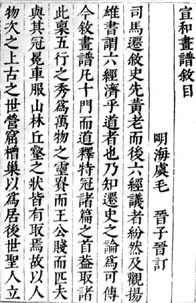 宣和畫譜敘目
明海虞毛 晉子晉訂
司馬遷敘史先黃老而後六經議者紛然及觀揚
雄書謂六經濟乎道者也乃知遷史之論為可傳
今敘畫譜凡十門而道釋特冠諸篇之首蓋取諸
此稟五行之秀為萬物之靈貴而王公賤而匹夫
與其冠冕車服山林丘壑之狀皆有取焉故以人
物次之上古之世營窟橧巢以為居後世聖人立